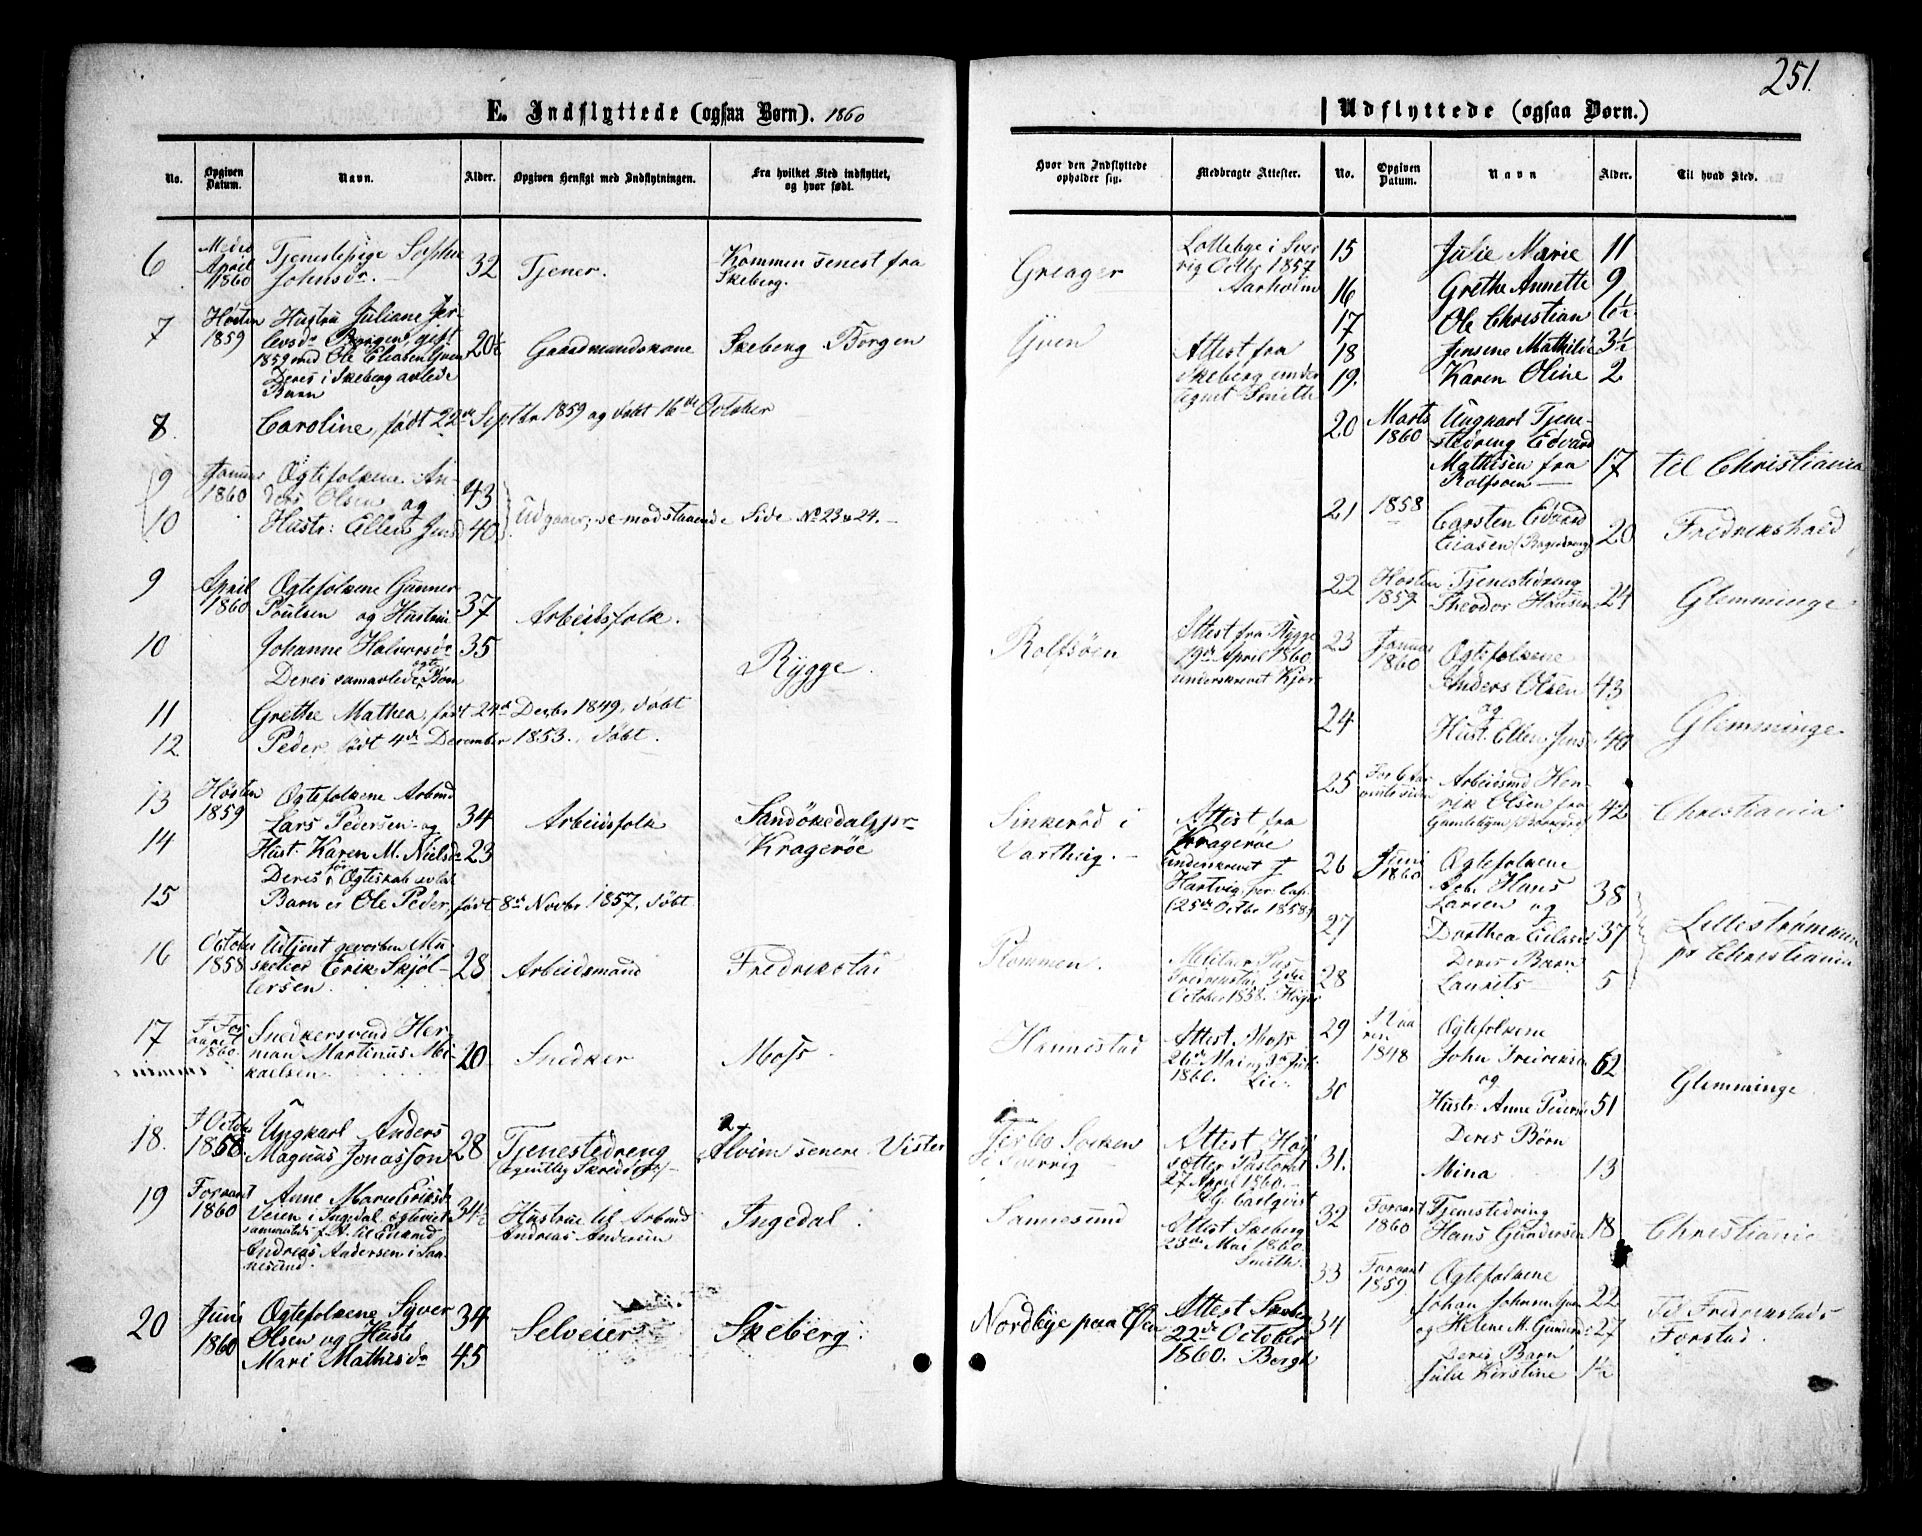 251.
E. Indflyttede (ogsaa Børn). 1860
No.
Opgiven Datum.
Navn.
Alder.
Opgiven Hensigt med Indflytningen.
Fra hvilket Sted indflyttet, og hvor født.
Hvor den Indflyttede opholder sig.
Medbragte Attester.
6 April 1860 Tjenestepige Sophie Johnsdr 32 Tjener. Kommen senest fra Skeberg. Greager
Octbr 1857
7 Høsten 1859 Hustru Juliane
Borgen, gift
1859 med Ole Eliasen Gueen 20½ Gaardmandskone Skeberg Borgen
Attest fra Skeberg under
Smith
Deres i Skeberg avlede
Barn
8. Caroline, født 22de Septbr 1859 og døbt 16de October
9 Januar 1860 Ogtefolkene Anders Olsen og 43
10 Hustr: Ellen Jensd 40 Udgaaer, se modstaaende Side No 23 & 24.
9 April 1860 Ogtefolkene Gunner Poulsen og Hustru 37 Arbeidsfolk.
10 Johanne Halvorsdr 35 Rygge. Rolfsøen Attest fra Rygge 19de April 1860 underskrevet Kjør
Deres samavlede ogte Børn
11 Grethe Mathea, født 24de Decbr 1849, døbt
12 Peder, født 4de December 1853. døbt.
13 Høsten 1859 Ogtefolkene Arbmd Lars Pedersen og 34 Arbeidsfolk Sandökedal, pr Kragerøe Sinkerød i Varthvig. Attest fra Kragerøe underskrevet
Hartvig, per. Cap. (25de Octbr 1858)
14 Hust. Karen M. Nielsdr 23
Deres før Ogteskab avlede
15 Barn er Ole Peder, født 8de Novbr 1857, døbt
16 October 1858 Udtjent gevorben Musketeer Erik Skjöltersen. 28 Arbeidsmand Fredrikstad Rommen. Militær Pas Fredrikstad
October 1858. Høyer
17 Foraaret 1860. Snedkersvend Herman Martinus Mikaelsen. 20 Snedker Moss. Hannestad Attest Moss
1860. Lie
18. October 1858 Ungkarl Anders Magnus Jonasson 28 Tjenestedreng
Alvim senere Vister
Socken i Sverrig Attest
Pastorat 27 April 1860.
Carlqvist
19 Foraaret 1860 Anne Marie Eriksdr
Veien i Ingedal
Andreas Andersen i Sannesund. 34½ Hustrue til Arbmd Andreas Andersen Ingedal. Sannesund Attest Skeberg 23de Mai 1860. Smith.
20 Juni 1860 Ogtefolkene Syver Olsen og Hustr 34
Mari Mathisdr 45 Selveier Skeberg. Nordbye paa Øen Attest Skeberg 22de October 1860. Bergh
Udflyttede (ogsaa Børn.)
No.
Opgiven Datum.
Navn
Alder.
Til hvad Sted.
15 Julie Marie 11
16 Grethe Annette 9
17 Ole Christian 6½
18 Jensine Mathilde 3½
19. Karen Oline 2
20 Marts 1860 Ungkarl Tjenestedreng Edvard Mathisen fra Rolfsøen 17 til Christiania
21 1858 Carsten Edvard Eliasen 20 Fredrikshald
22 Høsten 1859 Tjenestedreng Theodor Hansen 24 Glemminge
23 Januar 1860 Ogtefolkene Anders Olsen 43
og
24 Hust. Ellen Jensd 40 Glemminge
25 Arbeidsmd Henrik Olsen fra
42 Christiania
26 Juni 1860 Ogtefolkene Arb. Hans Larsen og 38
27 Dorthea Eliasd 37 Lillestrømmen pr Christiania
Deres Barn
28 Laurits 5
29 1848 Ogtefolkene John Fredriksen 62
og
30 Hustr. Anne Pedersd 51 Glemminge
Deres Børn
31. Mina 13
32 Foraaret 1860 Tjenestedreng Hans Gundersen 18 Christiania
33 Foraaret 1859 Ogtefolkene Johan Johannesen 22 Til Fredrikstads Forstad.
34 og Helene M. Gundersd 27
Deres Barn
Julie Kirstine 1½